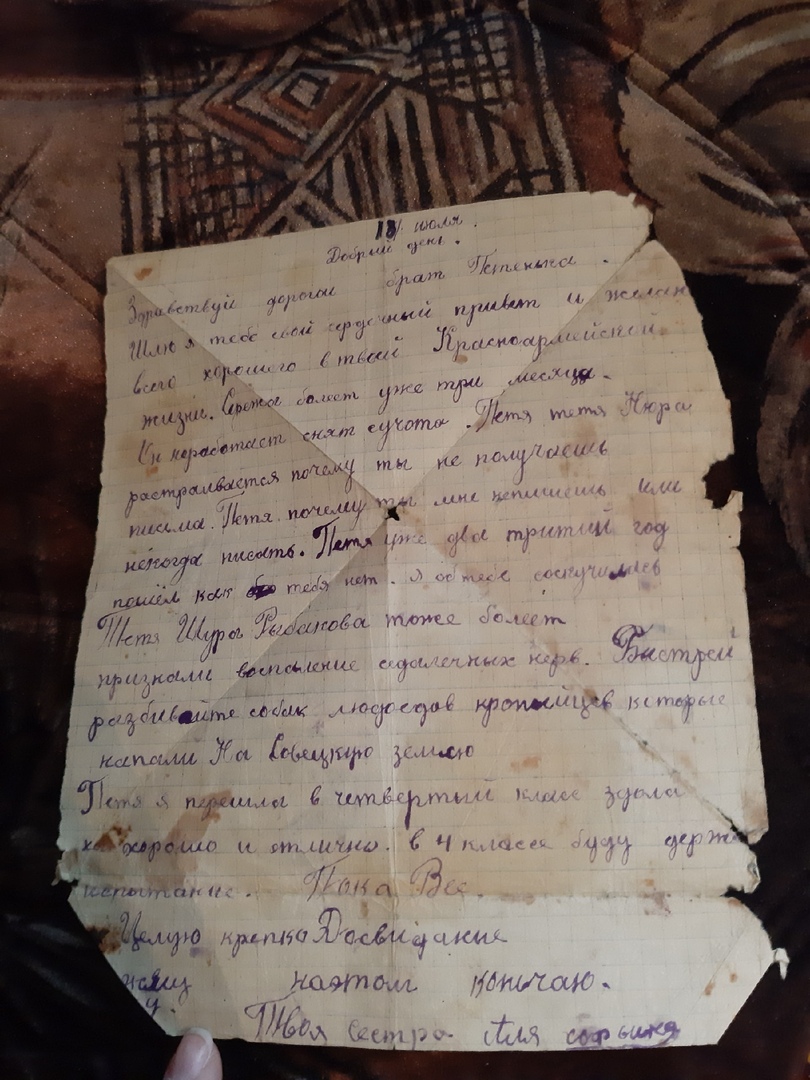 18/ июля.
Добрый день.
Здравствуй дорогой брат Петенька.
Шлю я тебе свой сердечный привет и желан
всего хорошего в твоей Красноармейской
жизни. Сережа болеет уже три месяца.
Он неработает снят сучота. Петя тетя Нюра
растраивается почему ты не получаешь
письма. Петя почему ты мне непишешь или
некогда писать. Петя уже два тритий год
пошёл как тебя нет. Я об тебе соскучилась
Петя Шура Рыбакова тоже болеет
признали воспаление седалечных нерв. Быстрей
разбивайте собак людоедов которые
напали На Совецкую землю
Петя я перешла в четвертый класс здала
хорошо и отлично. в 4 классе буду держ
испытание. Пока Все.
Целую крепка Досвидание
наэтом кончаю.
Твоя сестра Аля